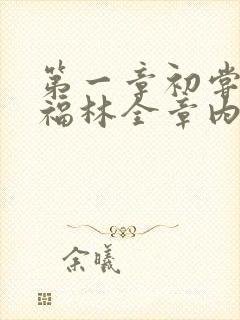 第一章初尝
福林全章内
余曦